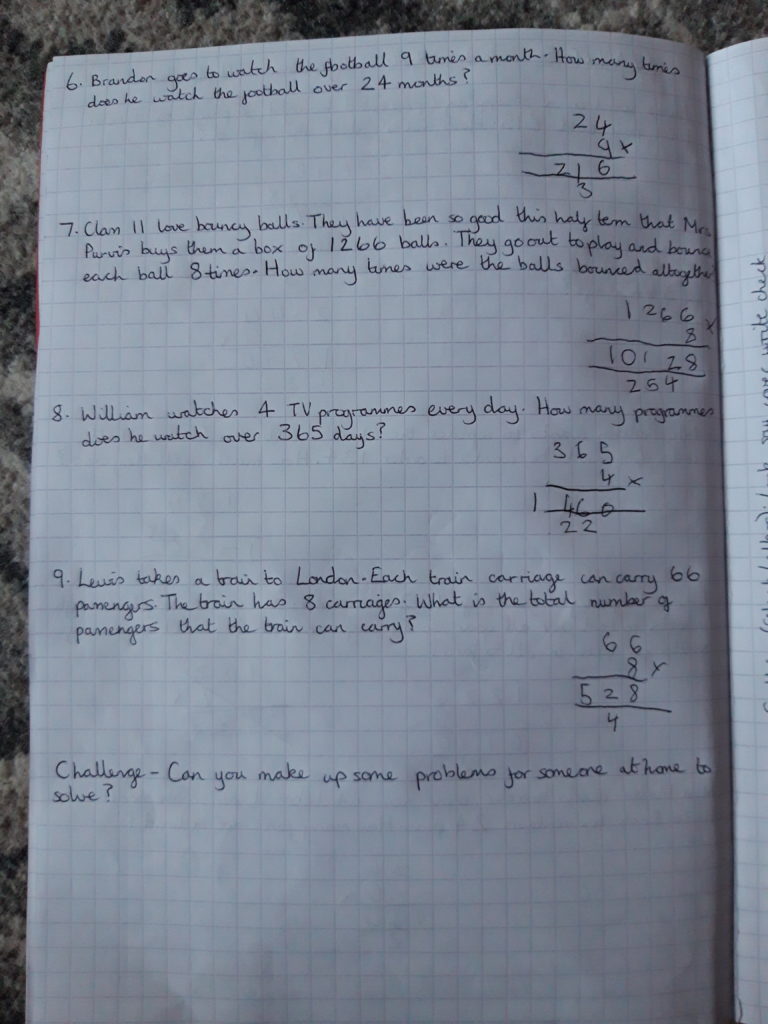 6. Brandon goes to watch the football 9 times a month. How many times
does he watch the football over 24 months?
24
9 x
216
3
7. Class 11 love bouncy balls. They have been so good this half term that Mrs
Purvis buys them a box of 1266 balls. They go out to play and bounce
each ball 8 times. How many times were the balls bounced altogether
1266
8 x
10128
254
8. William watches 4 TV programmes every day. How many programmes
does he watch over 365 days?
365
4 x
1460
22
9. Lewis takes a train to London. Each train carriage can carry 66
passengers. The train has 8 carriages. What is the total number of
passengers that the train can carry?
66
8 x
528
4
Challenge - Can you make up some problems for someone at home to
solve?